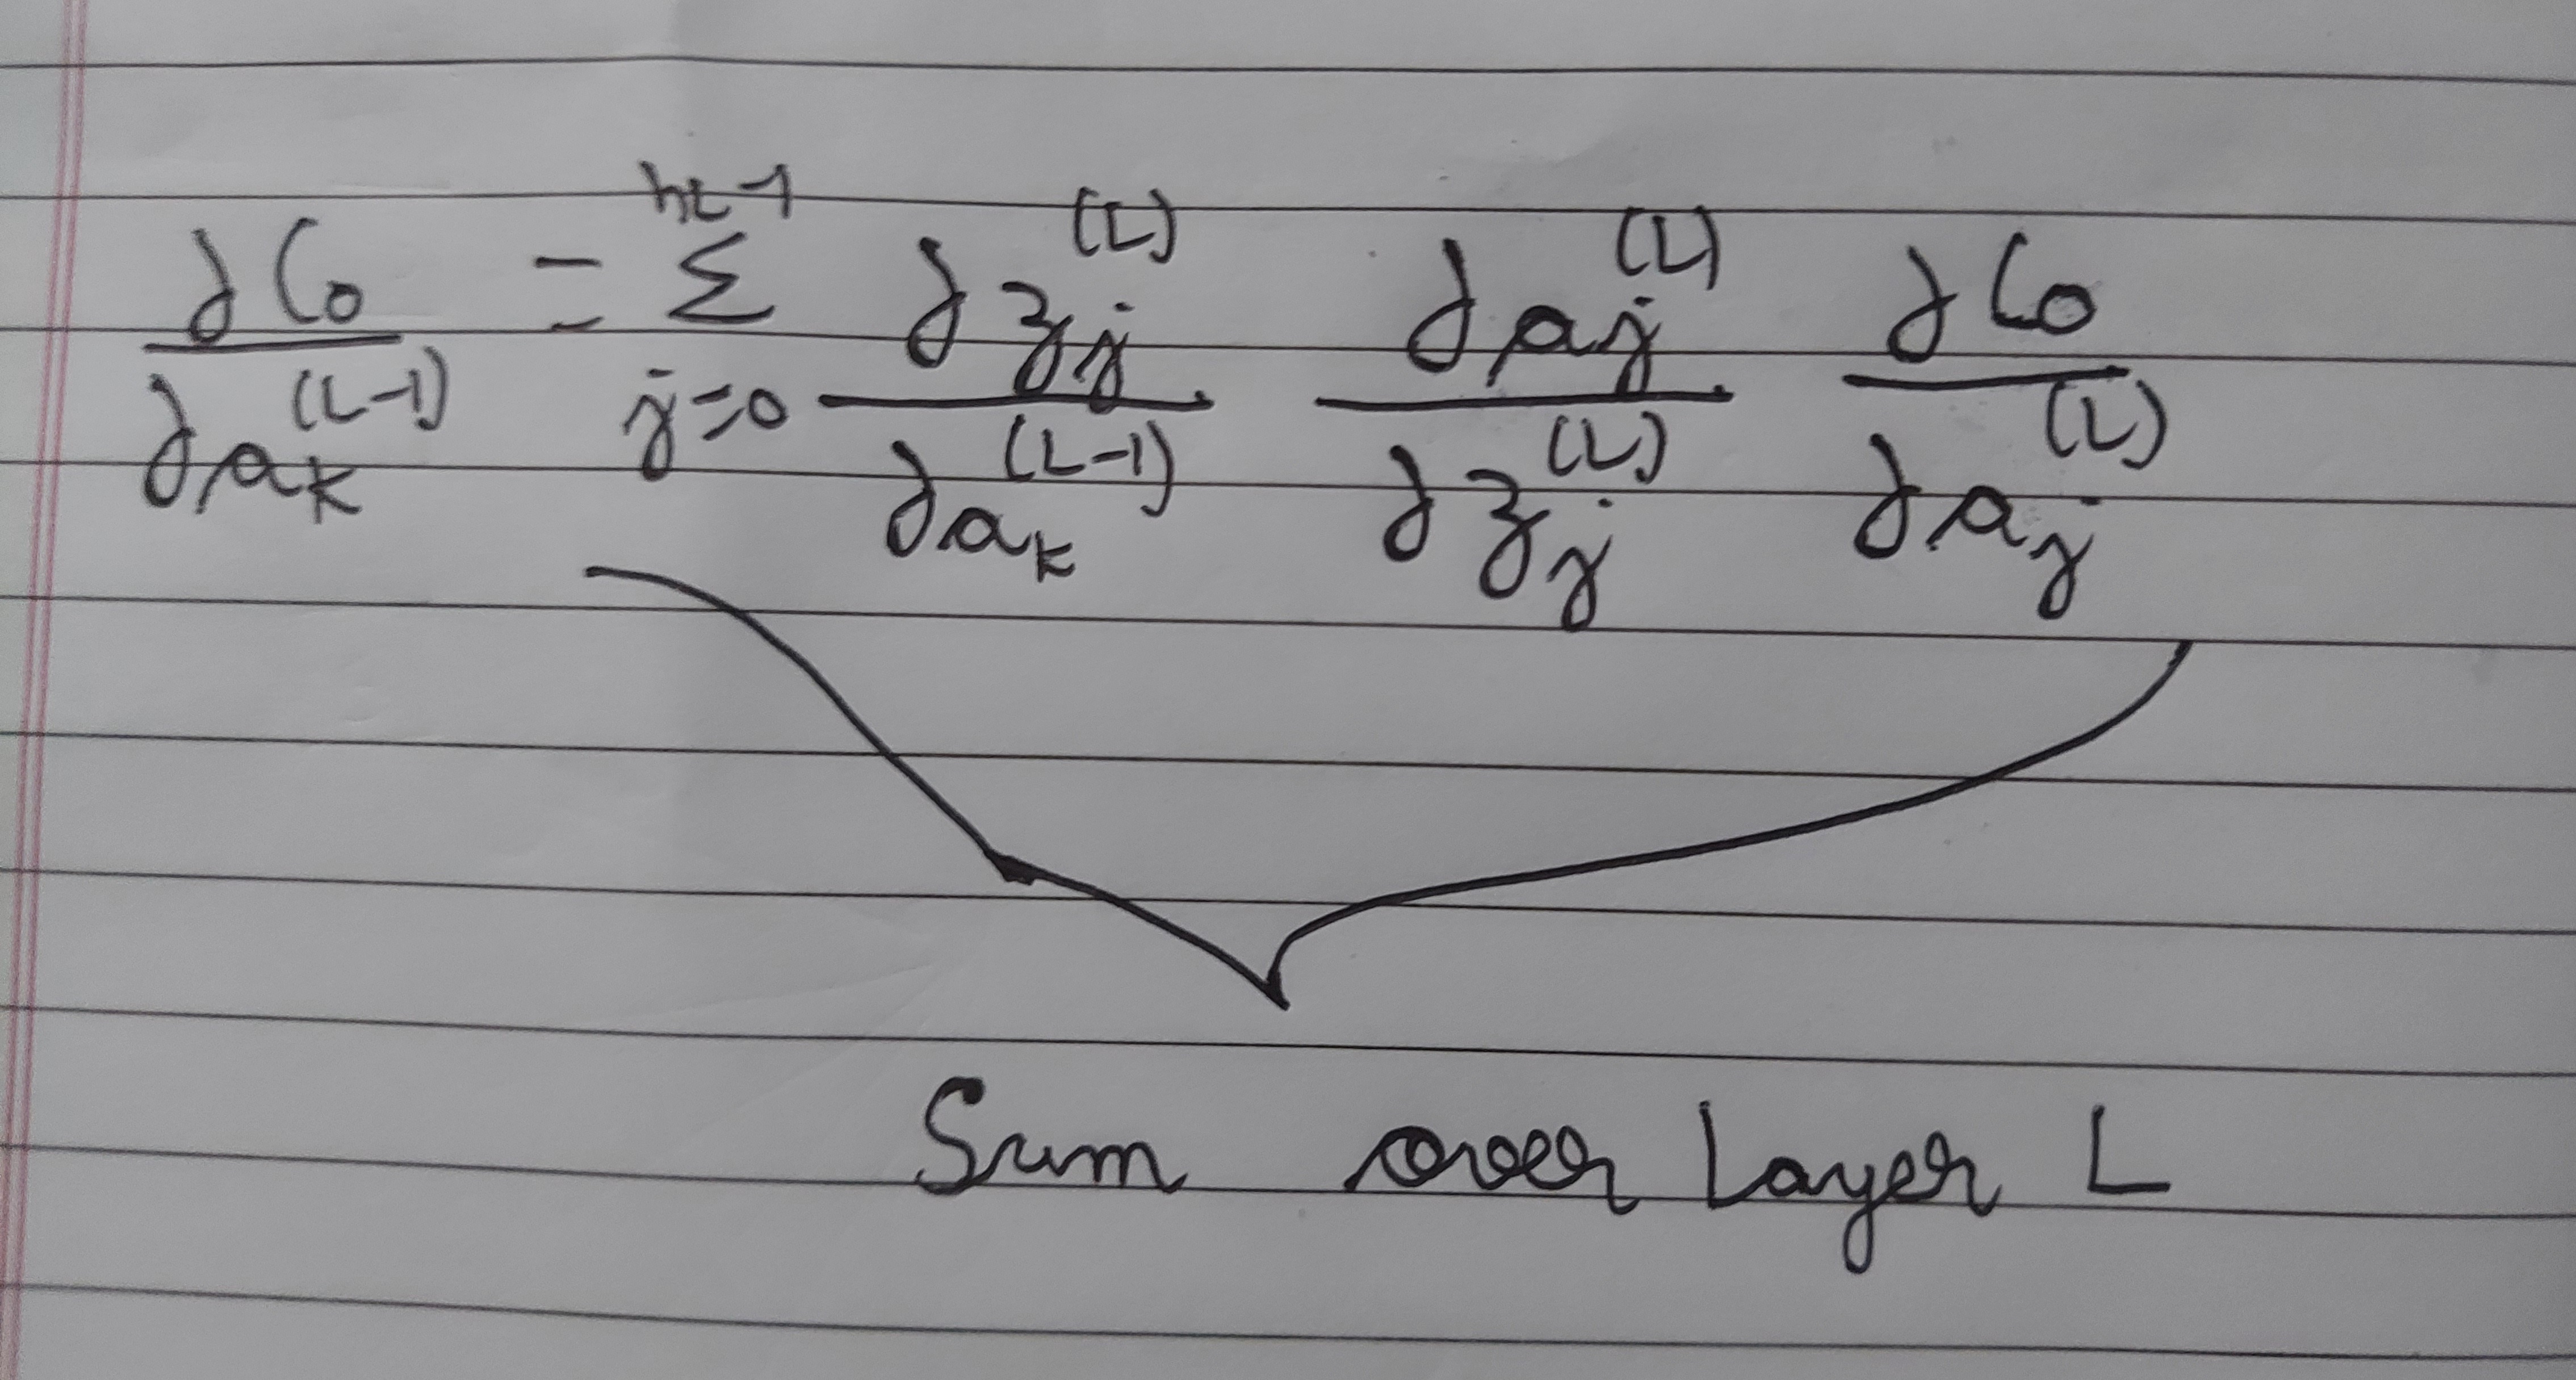 ∂C₀/∂aₖ^(L-1) = Σ_{j=0}^{n_L-1} ∂zⱼ^(L)/∂aₖ^(L-1) ∂aⱼ^(L)/∂zⱼ^(L) ∂C₀/∂aⱼ^(L)
Sum over Layer L